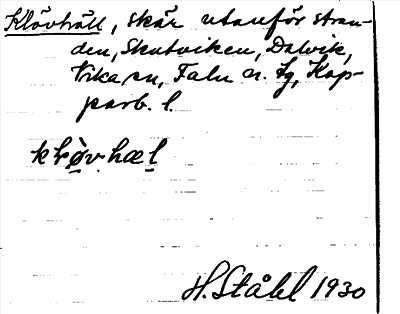 Klövhäll, skär utanför stran-
den, Skutviken, Dalvik,
Vika sn, Falu n. lg, Kop-
parb. l.
klø̀v.hæl
H. Ståhl 1930